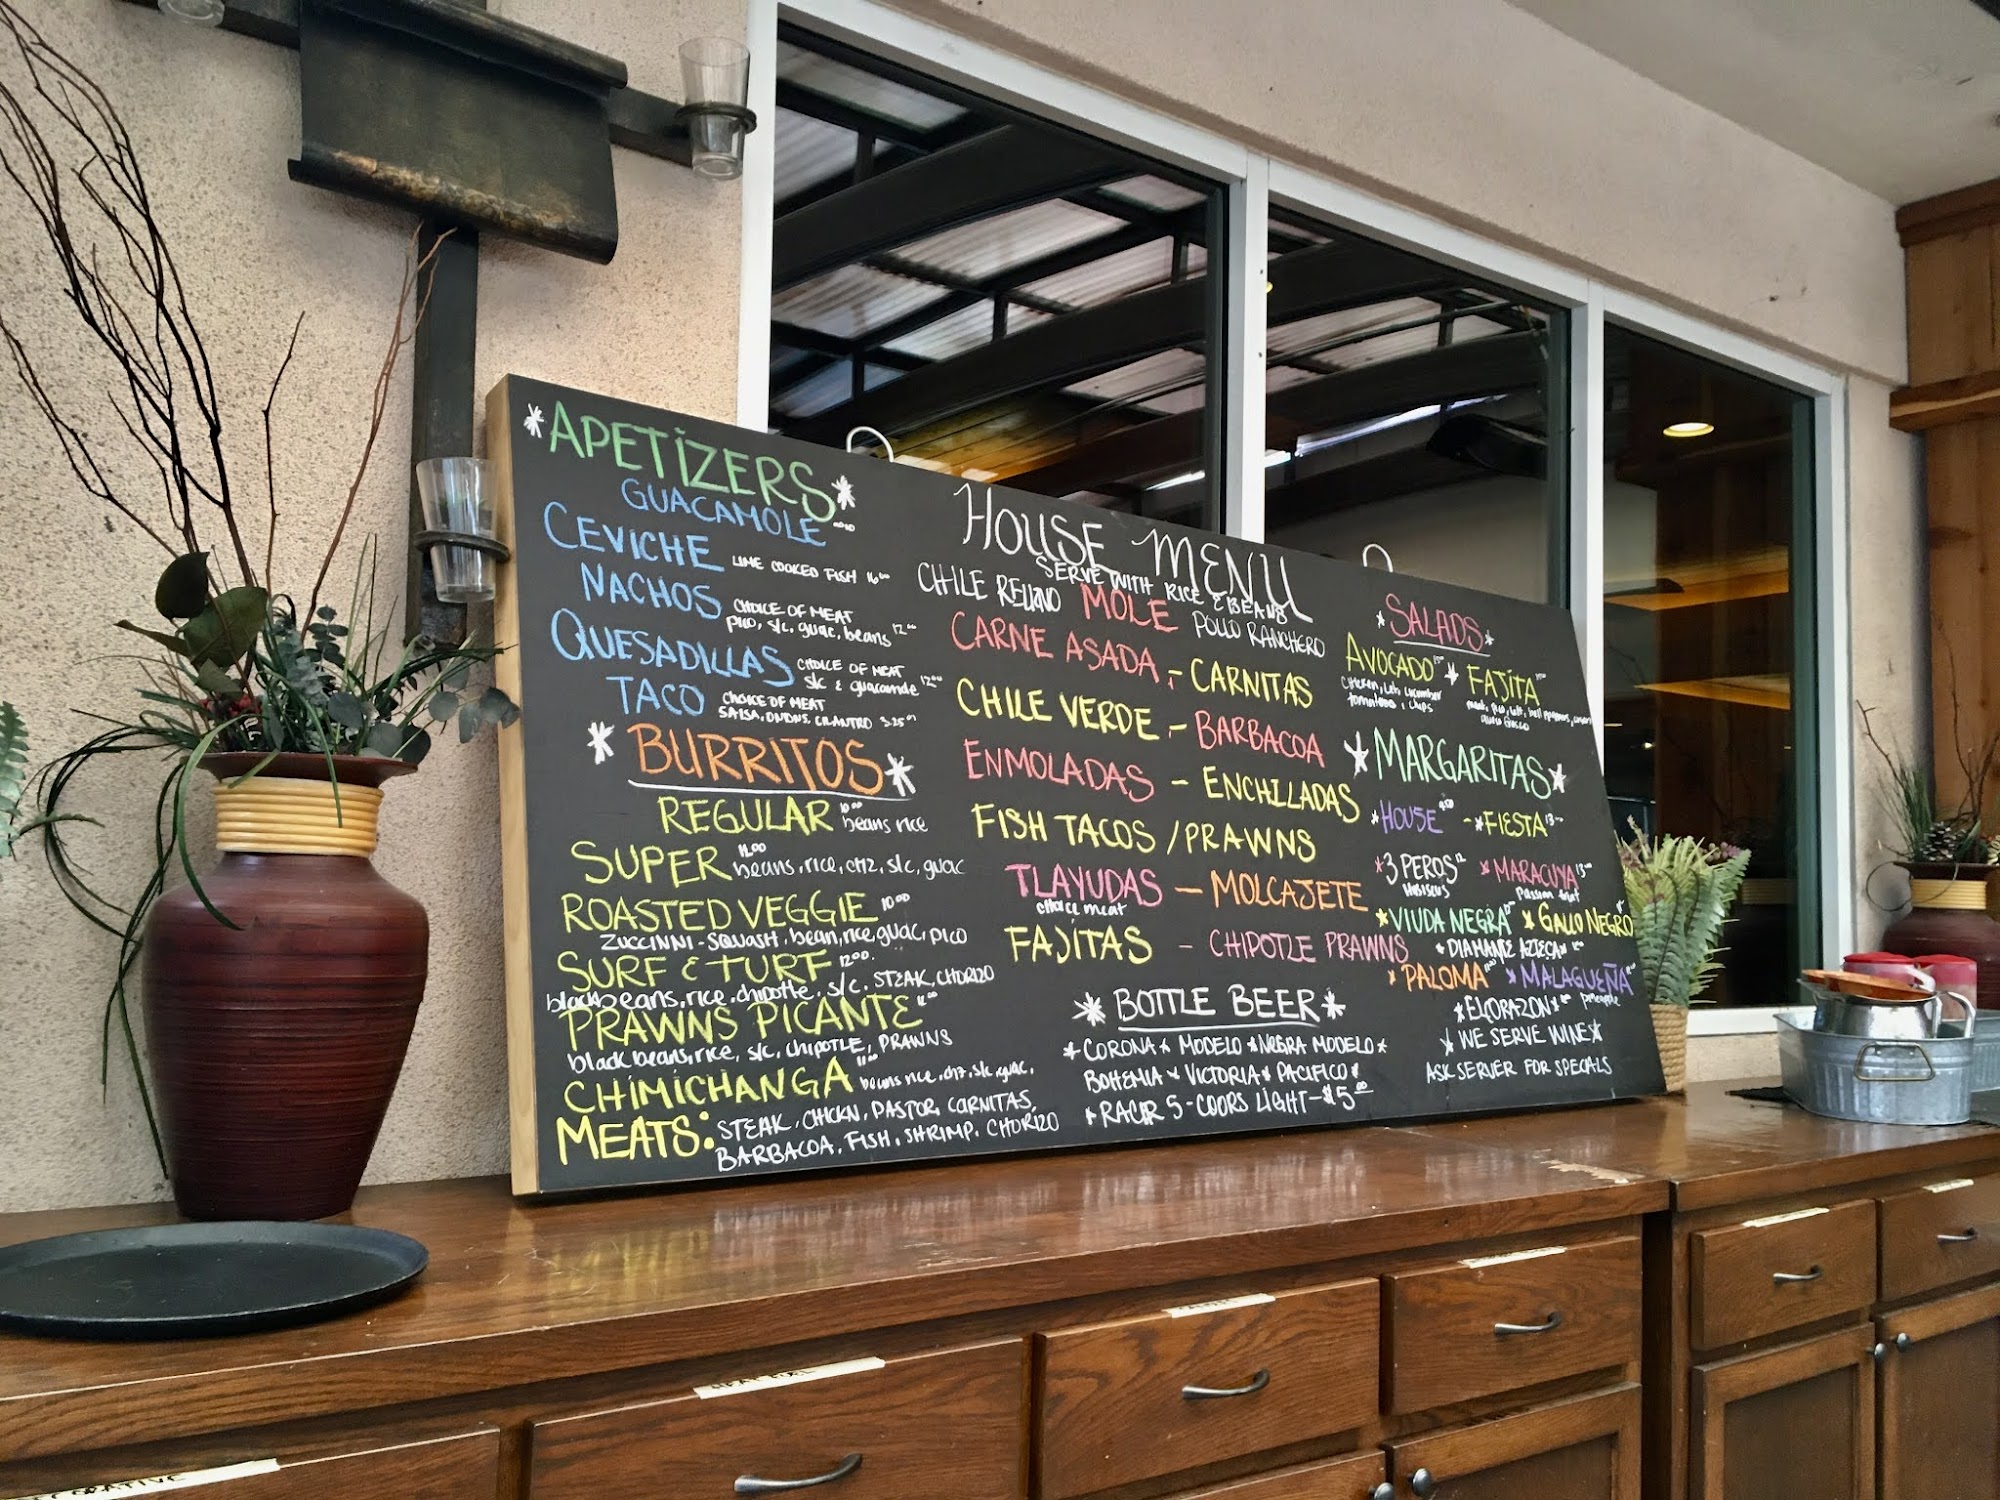 *APETIZERS*
GUACAMOLE
CEVICHE LIME COOKED FISH 16.00
NACHOS CHOICE OF MEAT
pico, s/c, guac, beans 12.00
QUESADILLAS CHOICE OF MEAT
s/c & guacamole 12.00
TACO CHOICE OF MEAT
SALSA, ONIONS, CILANTRO 3.25
*BURRITOS*
REGULAR 10.00 beans rice
SUPER 11.00 beans, rice, chz, s/c, guac
ROASTED VEGGIE 10.00
ZUCCINNI - SQUASH, bean, rice, guac, pico
SURF & TURF 12.00
black beans, rice, chipotle, s/c. STEAK, CHORIZO
PRAWNS PICANTE
black beans, rice, s/c, chipotle, PRAWNS
CHIMICHANGA 11.00 beans rice, chz, s/c, guac,
MEATS: STEAK, CHICKN, PASTOR, CARNITAS,
BARBACOA, FISH, SHRIMP, CHORIZO
HOUSE MENU
SERVE WITH RICE & BEANS
CHILE RELLENO MOLE POLLO RANCHERO
CARNE ASADA, - CARNITAS
CHILE VERDE, - BARBACOA
ENMOLADAS - ENCHILADAS
FISH TACOS / PRAWNS
TLAYUDAS - MOLCAJETE
choice meat
FAJITAS - CHIPOTLE PRAWNS
*BOTTLE BEER*
*CORONA * MODELO * NEGRA MODELO *
BOHEMIA * VICTORIA * PACIFICO *
*RACR 5 - COORS LIGHT - $5.00
*SALADS*
AVOCADO * FAJITA
chicken, Let, cucumber
tomatoes, chips
*MARGARITAS*
*HOUSE 9.50 - *FIESTA 13
*3 PEROS 12 * MARACUYA 13.00
HIBISCUS Passion fruit
*VIUDA NEGRA * GALLO NEGRO
*DIAMANTE AZTECA*
*PALOMA * MALAGUEÑA
pineapple
*ELCORAZON*
*WE SERVE WINE*
ASK SERVER FOR SPECIALS